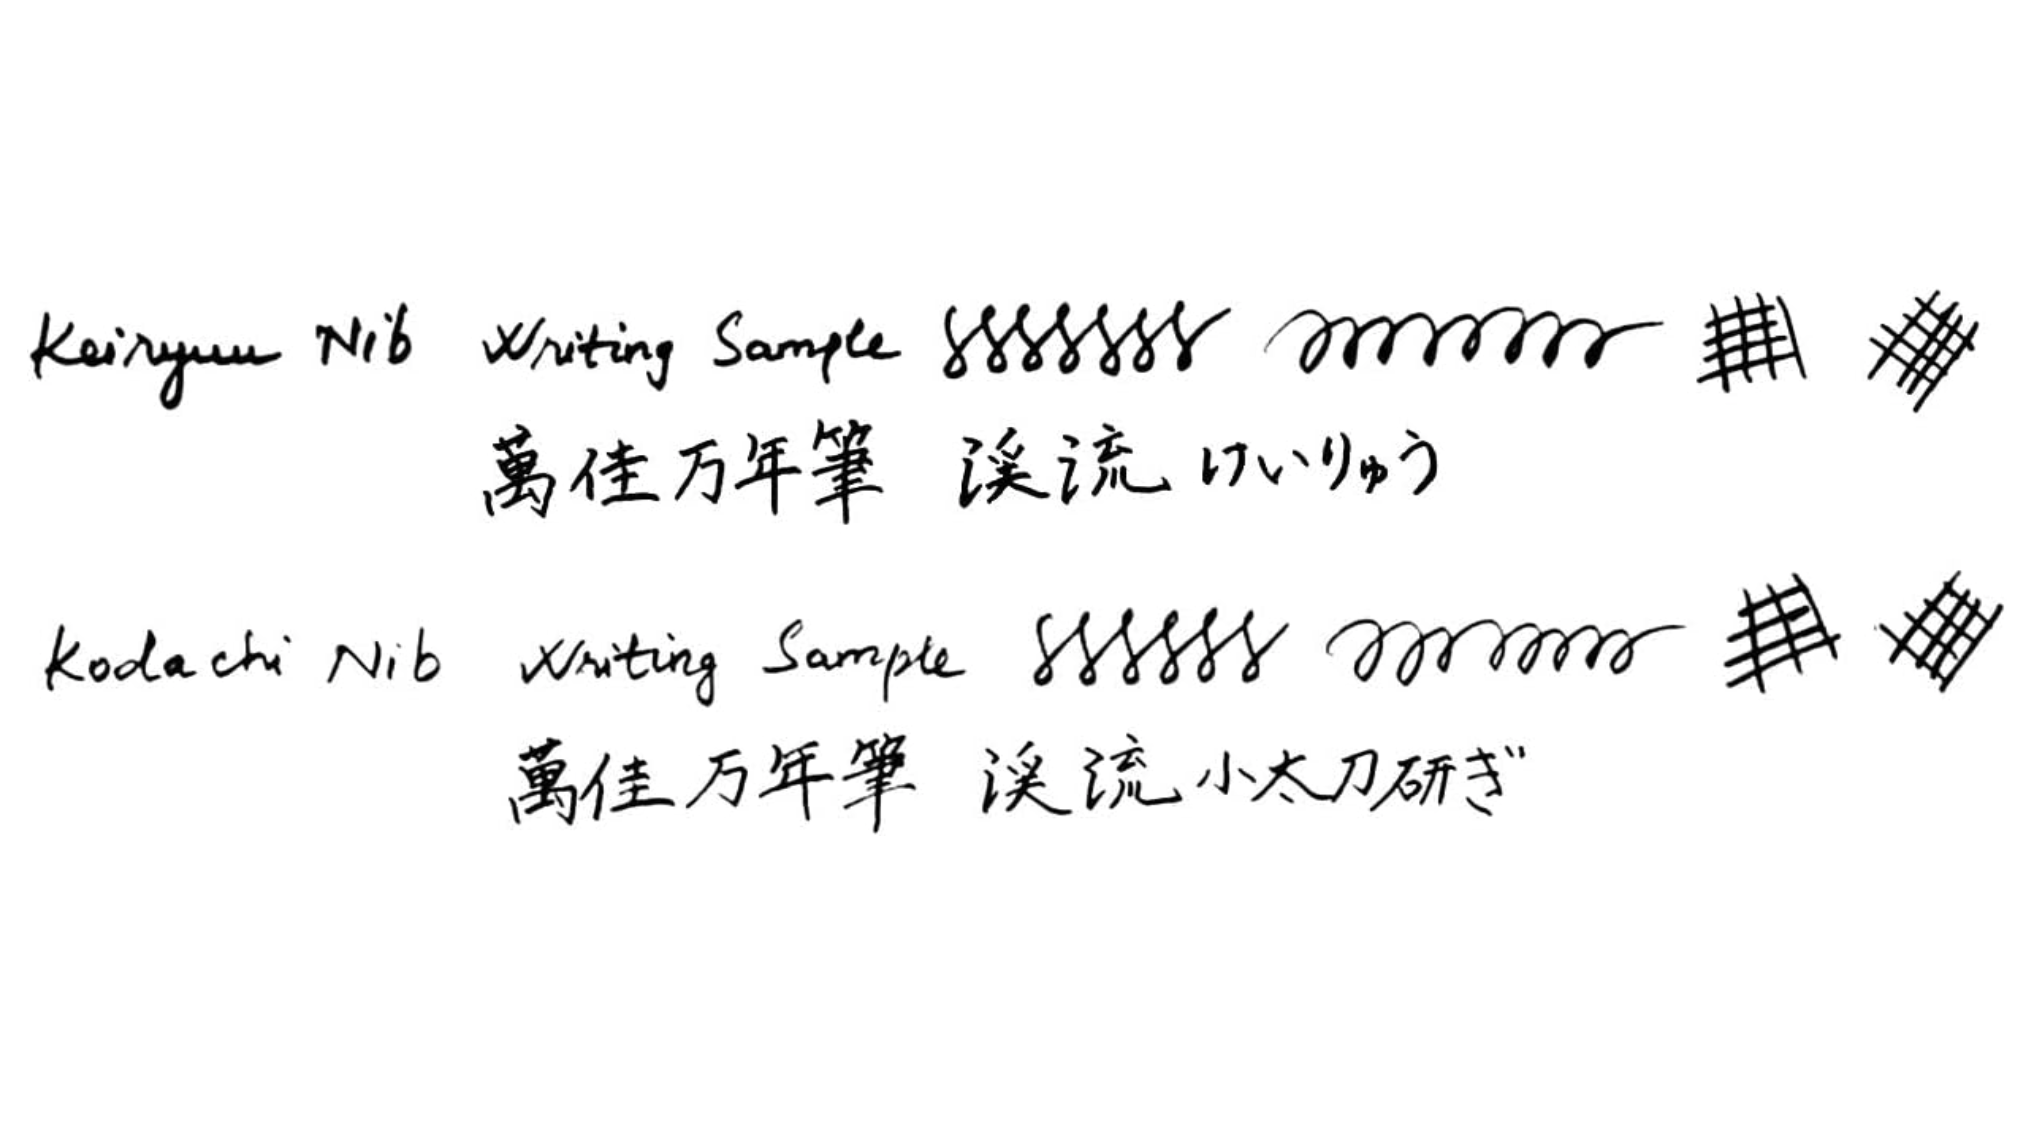 Keiryuu Nib Writing Sample
萬佳万年筆 渓流 けいりゅう
Kodachi Nib Writing Sample
萬佳万年筆 渓流 小太刀研ぎ